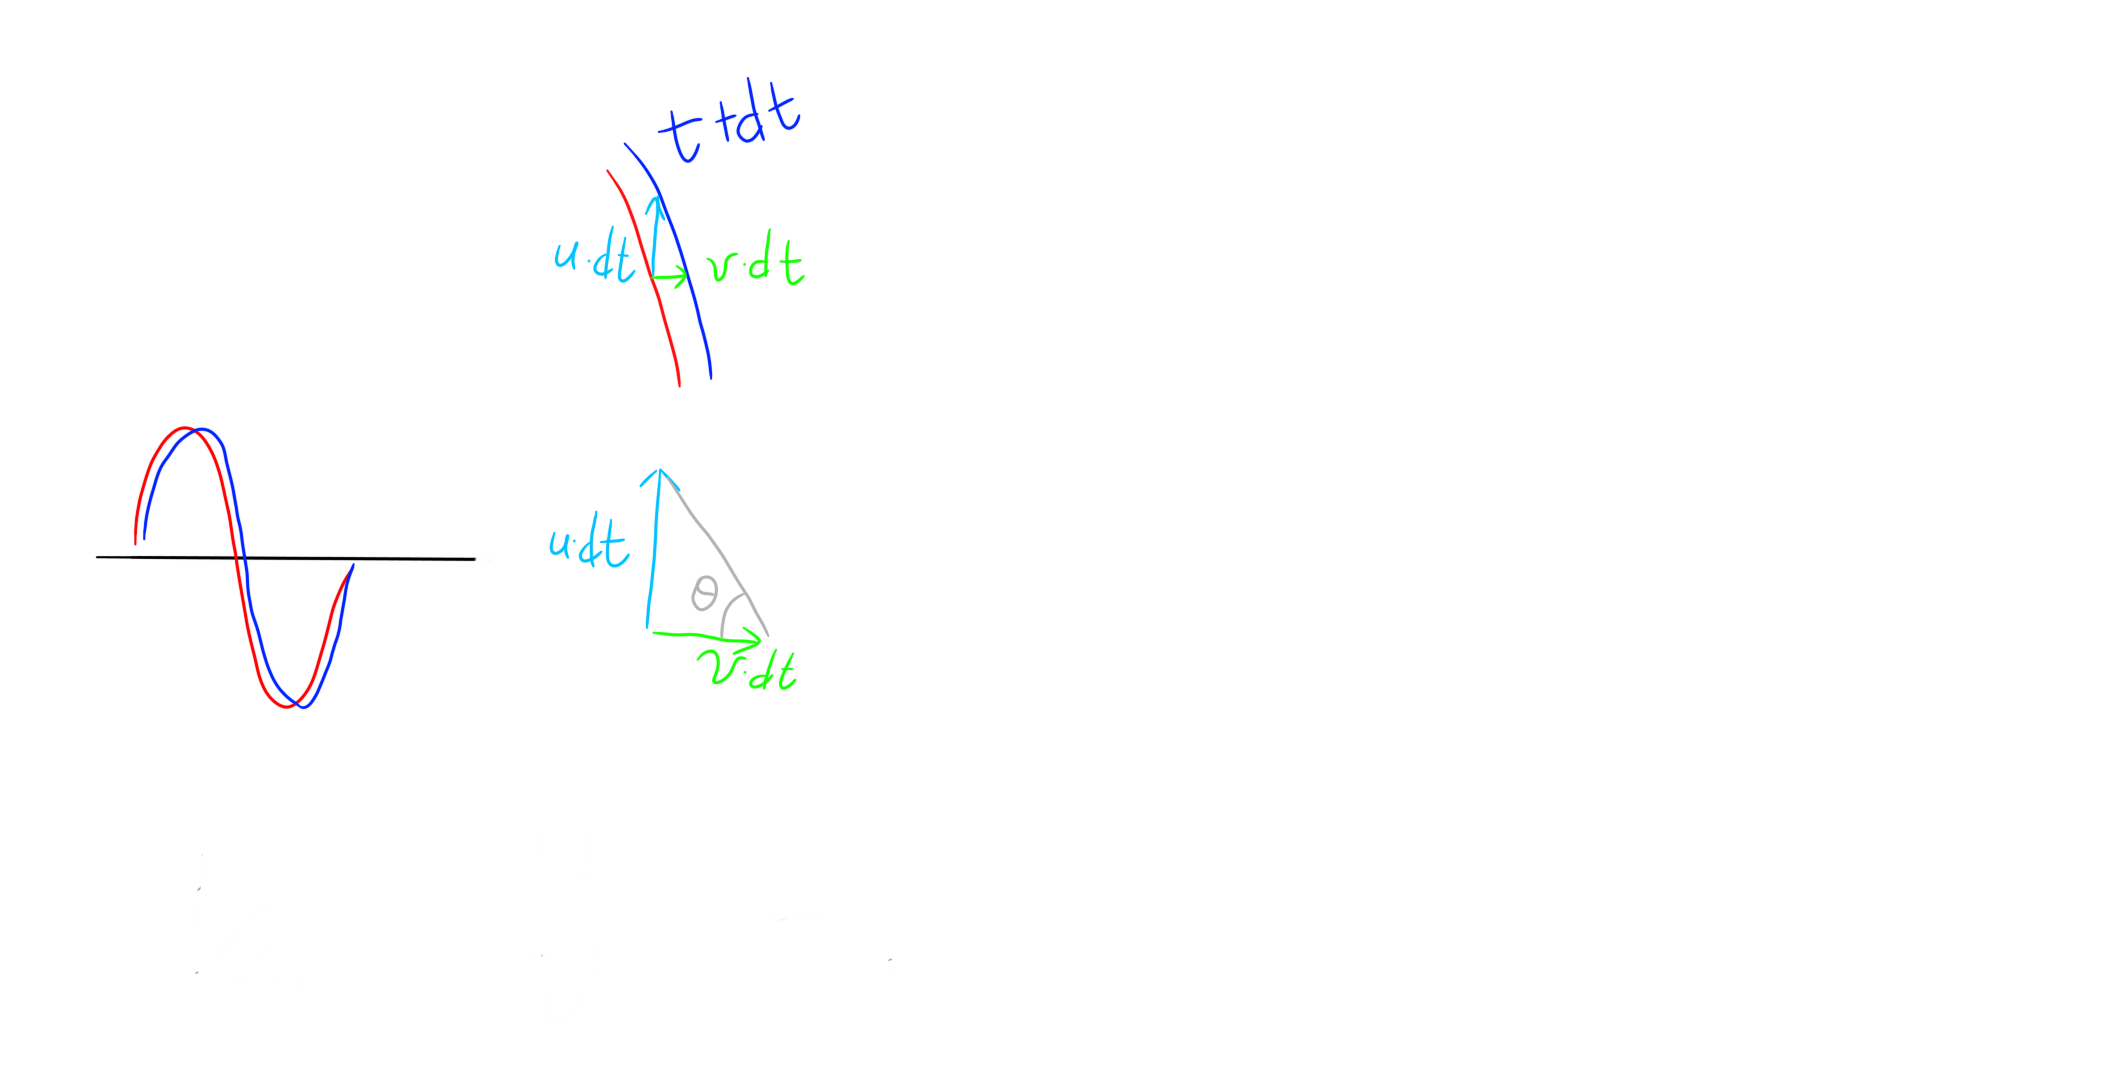 t+dt
u·dt
v·dt
u·dt
θ
v·dt